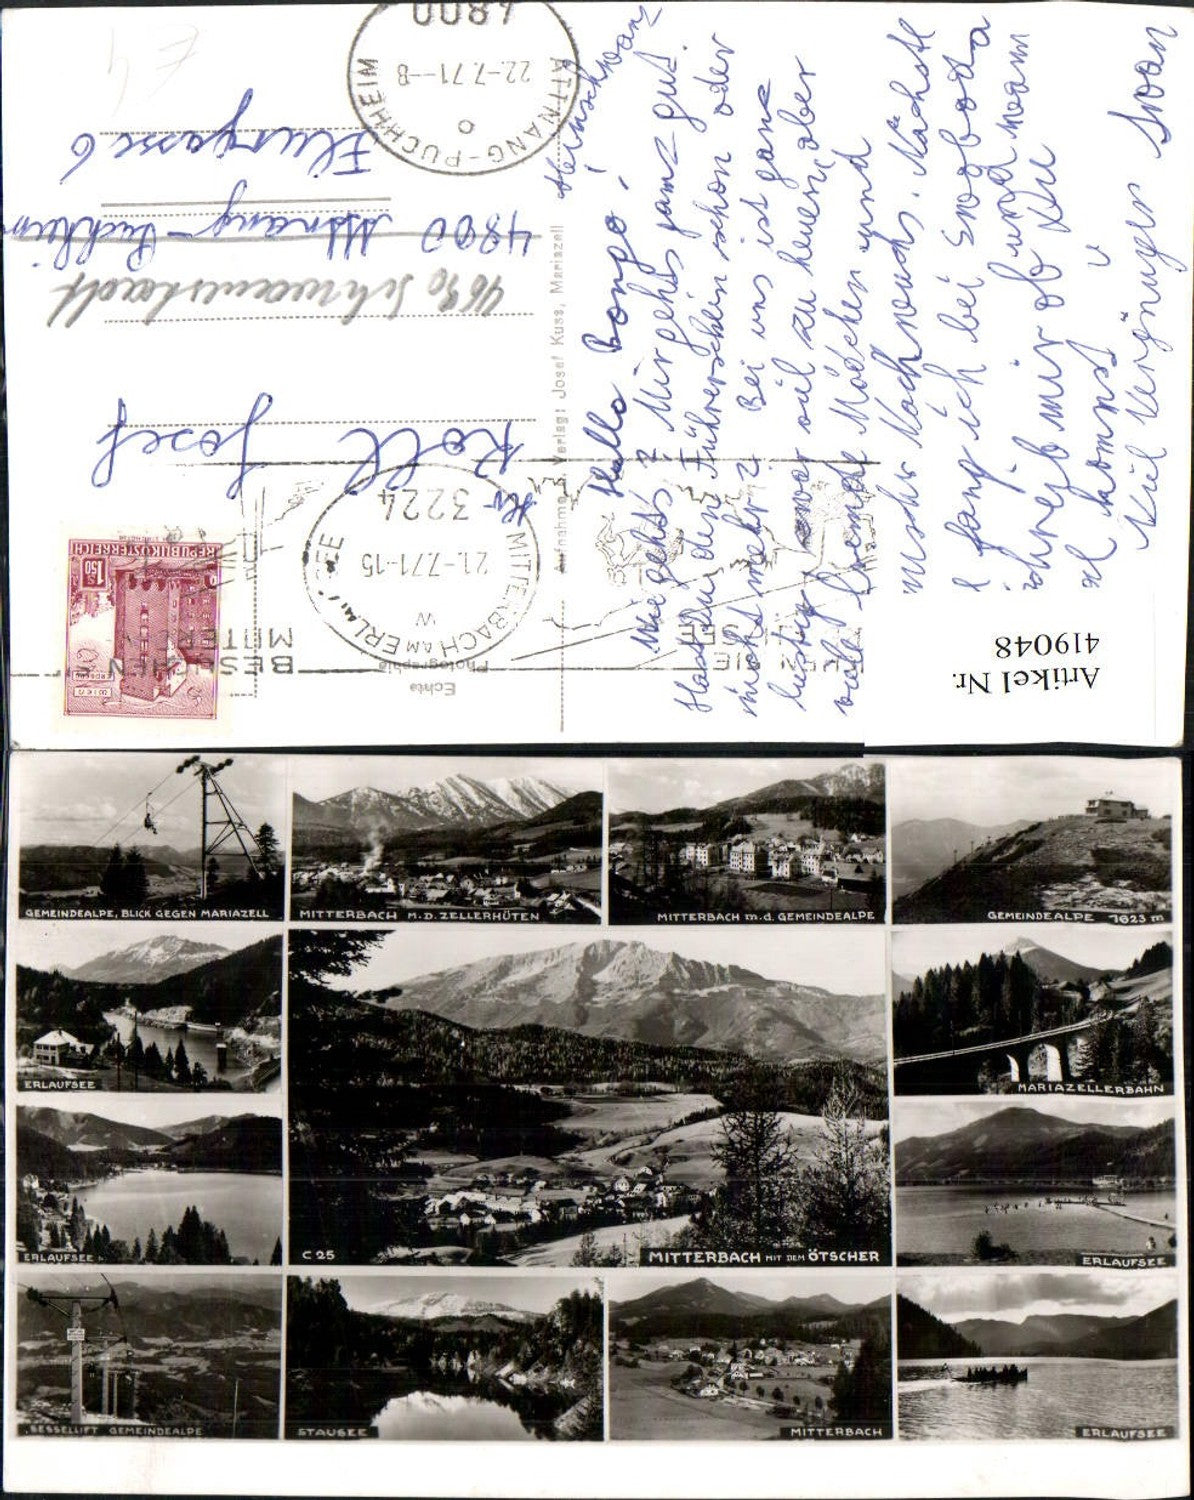 4800
ATTNANG-PUCHHEIM
22-7.71-8
Flurgasse 6
4800 Attnang-Puchheim
4690 Schwanenstadt
Roll Josef
Hr
3224
MITTERBACH AM ERLAUFSEE
21-7.71-15
W
REPUBLIK ÖSTERREICH
S 1,50
WIEN
BESUCHEN
MITTER
Echte
Photographie
Aufnahme u. Verlag: Josef Kuss, Mariazell
Hallo Bongo!
Wie gehts? Mir gehts ganz gut.
Hast du den Führerschein schon oder
nicht mehr? Bei uns ist ganz
lustig zwar viel zu heuen, aber
viele fremde Mädchen und
Nachwuchs. Nächste
fang ich bei Swoboda
schreib mir ob und wann
ob du
kommst
Viel Vergnügen Ivan
Artikel Nr.
419048
GEMEINDEALPE, BLICK GEGEN MARIAZELL
MITTERBACH M. D. ZELLERHÜTEN
MITTERBACH m. d. GEMEINDEALPE
GEMEINDEALPE 1623 m
ERLAUFSEE
MARIAZELLERBAHN
ERLAUFSEE
C 25
MITTERBACH MIT DEM ÖTSCHER
ERLAUFSEE
SESSELLIFT GEMEINDEALPE
STAUSEE
MITTERBACH
ERLAUFSEE